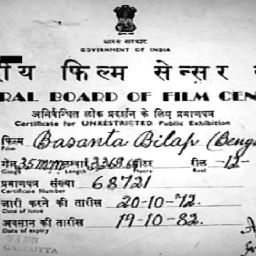 भारत सरकार
GOVERNMENT OF INDIA
फिल्म सेन्सर
BOARD OF FILM
अनिर्बन्धित लोक प्रदर्शन के लिए प्रमाणपत्र
Certificate for UNRESTRICTED Public Exhibition
फिल्म Basanta Bilap (Beng
Film
गेज 35mm लम्बाई 3369.66 मीटर रील -12-
Gauge Metres Reel
प्रमाणपत्र संख्या 68721
Certificate Number
जारी करने की तारीख 20-10-72.
Date of issue
अवसान की तारीख 19-10-82.
Date of expiry
CALCUTTA